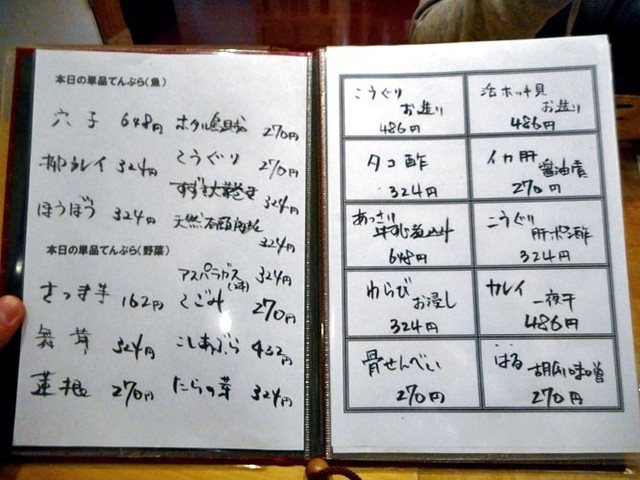 本日の単品てんぷら(魚)
穴子 648円
柳カレイ 324円
ほうぼう 324円
ホタル烏賊 270円
こうぐり 270円
すずき大葉巻き 324円
天然 324円
本日の単品てんぷら(野菜)
さつま芋 162円
舞茸 324円
蓮根 270円
アスパラガス 324円
こごみ 270円
こしあぶら 432円
たらの芽 324円
こうぐり
お造り
486円
活ホッキ貝
お造り
486円
タコ酢
324円
イカ肝
醤油漬
270円
あっさり
648円
こうぐり
肝ポン酢
324円
わらび
お浸し
324円
カレイ
一夜干
486円
骨せんべい
270円
はる
胡瓜味噌
270円